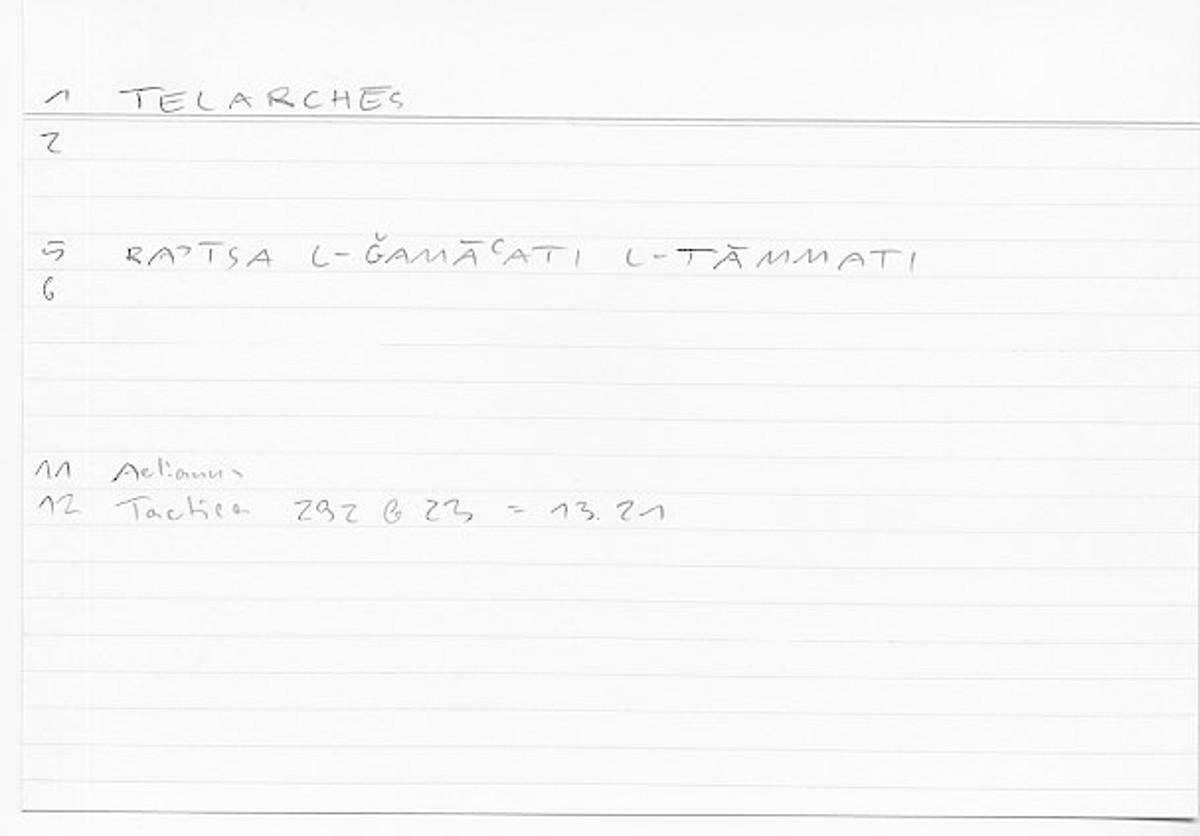 1 TELARCHĒS
2
5 RAʾĪSA L-ǦAMĀʿATI L-TĀMMATI
6
11 Aelianus
12 Tactica 292 G 23 = 13.21